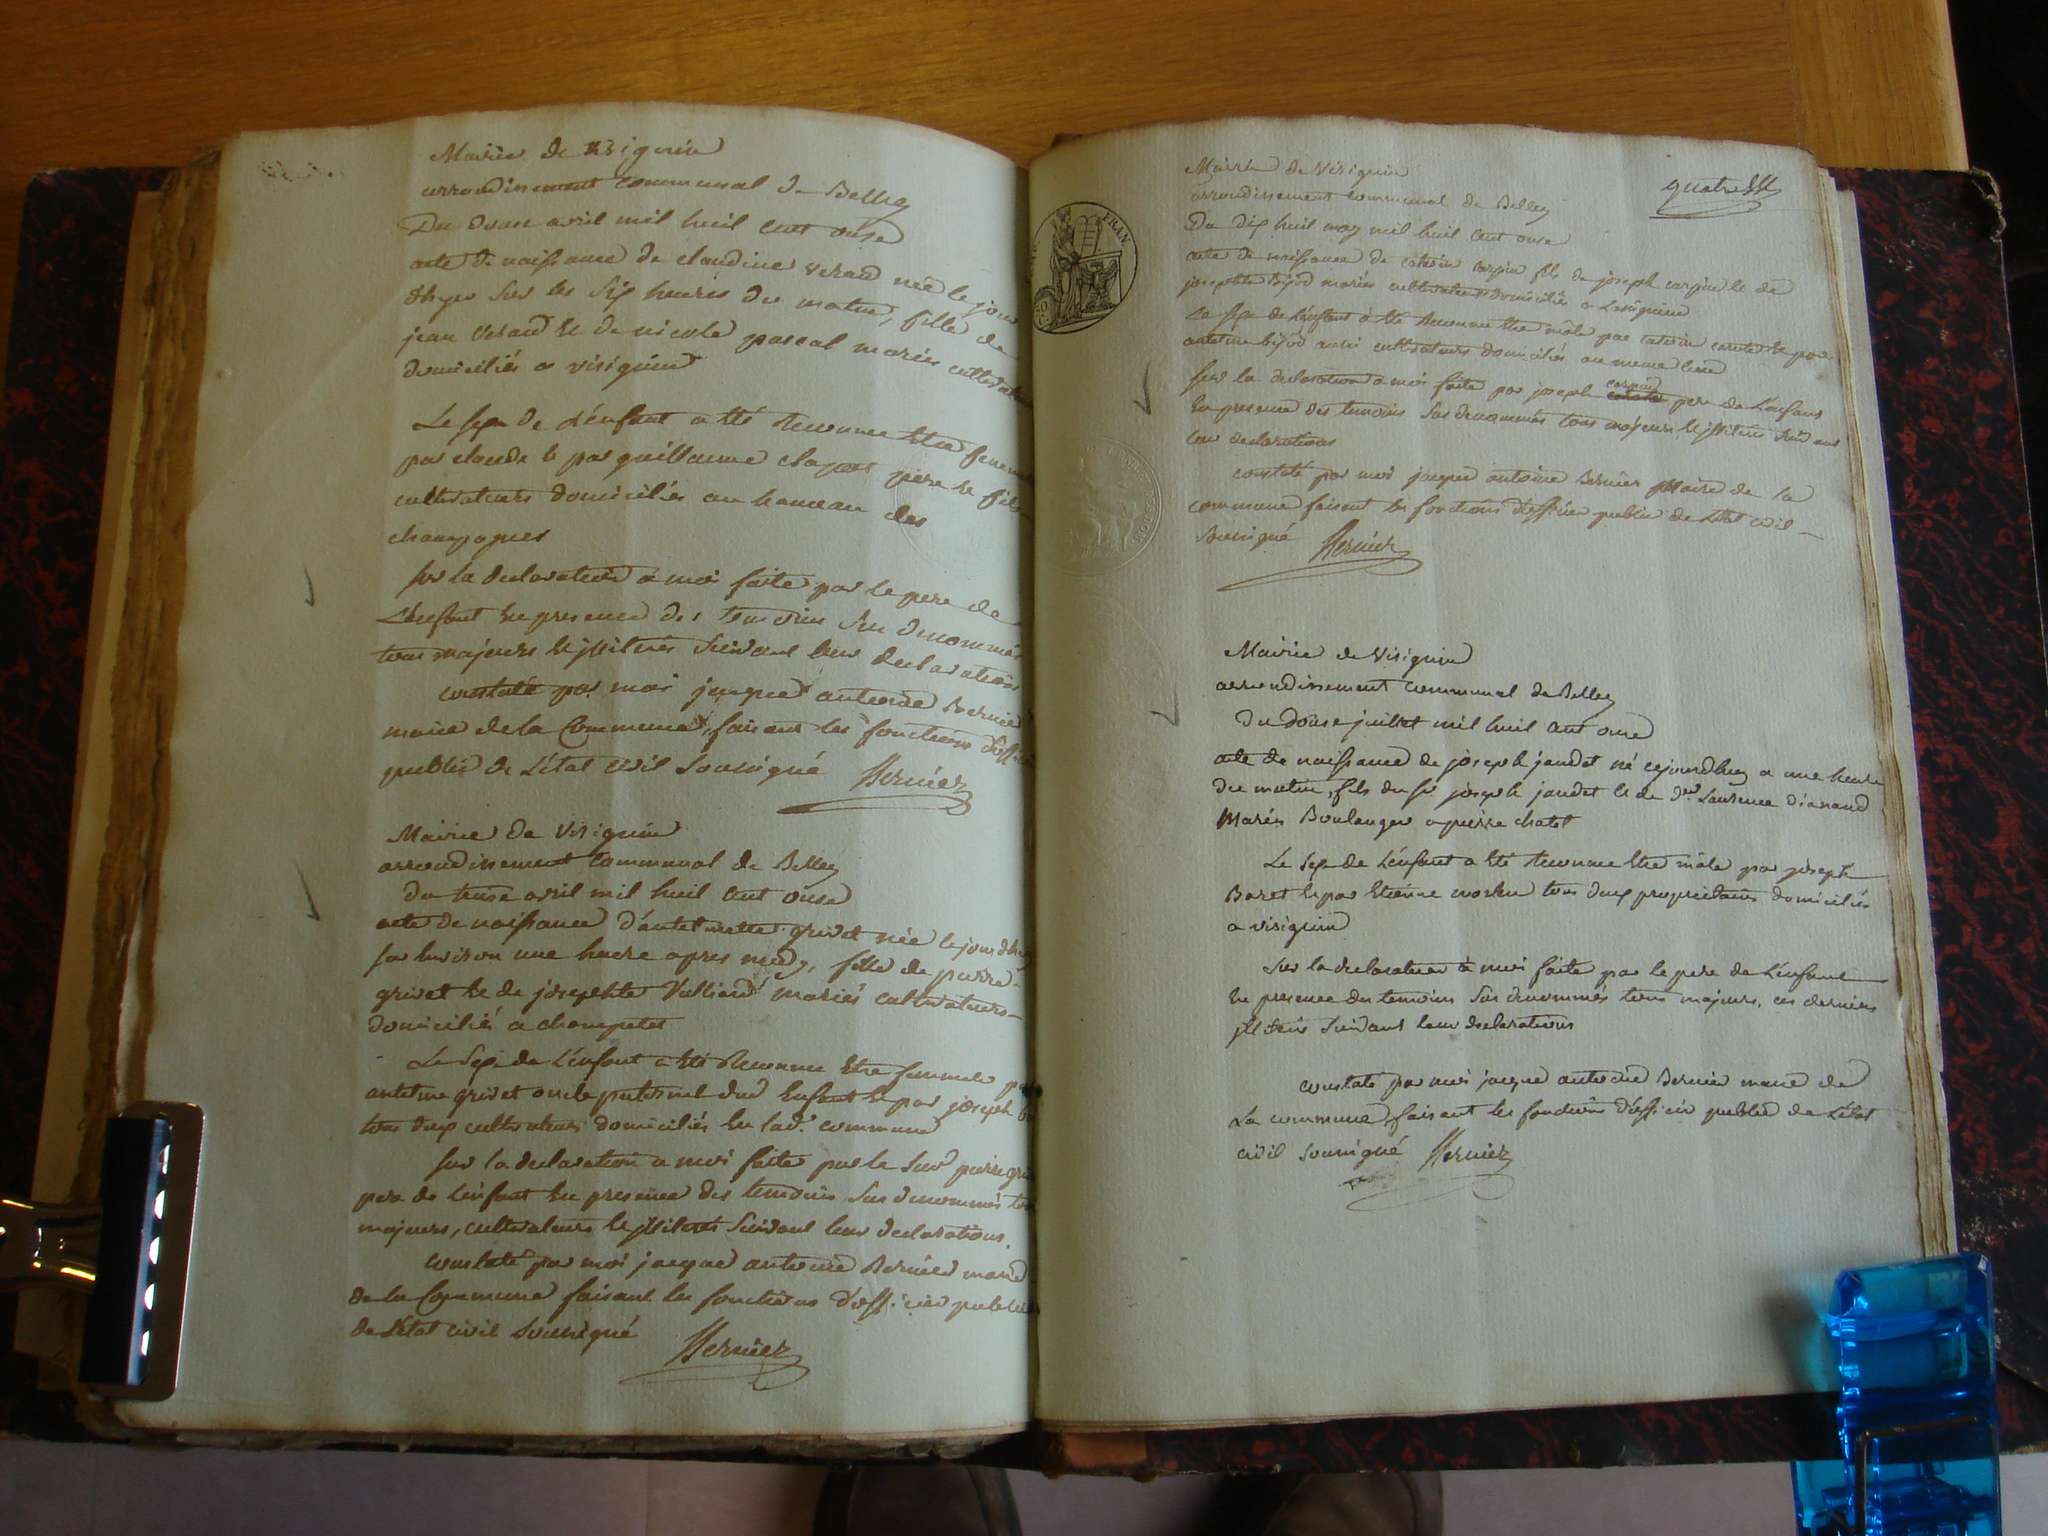 Mairie de Visignin
arrondissement communal de Belley
Du douse avril mil huit cent onse
acte de naissance de claudine veraud née le jour
dhyer sur les six heures du matin, fille de
jean veraud et de nicole pascal mariés cultivateurs
domiciliés a visignin
Le sexe de l'enfant a été reconnu etre femel
par claude et par guillaume père et fils
cultivateurs domiciliés au hameau des
champagnes
sur la declaration a moi faite par le pere de
L'enfant en presence des temoins sus denommés
tous majeurs et illiterés suivant leur declaration
constaté par moi jacque antoine Bernier
maire de la Commune, faisant les fonctions d'offi
public de L'état civil soussigné Bernier
Mairie de Visignin
arrondissement communal de Belley
du trese avril mil huit cent onse
acte de naissance d'antelmette grivet née le jour dhyer
sur environ une heure apres midy, fille de pierre
grivet et de josephte Vulliand mariés cultivateurs
domiciliés a champetel
Le sexe de L'enfant a été reconnu etre femmele par
antelme grivet oncle paternel dud enfant et par joseph
tous deux cultivateurs domiciliés en lad. commune
sur la declaration a moi faite par le sus pierre gri
pere de L'enfant en presence des temoins sus denommés to
majeurs, cultivateurs et illiterés suivant leur declarations.
constaté par moi jacque antoine Bernier maire
de la Commune faisant les fonctions d'officier public
de L'état civil soussigné
Bernier
quatre
FRAN
Mairie de Visignin
arrondissement communal de Belley
Du dix huit may mil huit cent onse
acte de naissance de catherin carpin fils de joseph carpin et de
josephte Bijod mariés cultivateurs domiciliés a
Le sexe de L'enfant a été reconnu etre mâle par caterin et par
antelme bijod aussi cultivateurs domiciliés au meme lieu
sur la declaration a moi faite par joseph carpin pere de L'enfant
En presence des temoins sus denommés tous majeurs et illiterés suivant
leur declarations
constaté par moi jacque antoine Bernier Maire de la
commune faisant les fonctions d'officier public de L'état civil
soussigné Bernier
Mairie de Visignin
arrondissement communal de Belley
du douse juillet mil huit cent onse
acte de naissance de joseph jandet né cejourdhuy a une heure
du matin, fils du sr. joseph jandet et de dme Laurence dianand
Mariés Boulanger a pierre chatel
Le sexe de L'enfant a été reconnu etre mâle par joseph
Baret et par Etienne tous deux proprietaires domiciliés
a visignin
sur la declaration a moi faite par le pere de L'enfant
En presence des temoins sus denommés tous majeurs, ces derniers
illiterés suivant leur declarations
constaté par moi jacque antoine Bernier maire de
La commune, faisant les fonctions d'officier public de L'état
civil soussigné Bernier